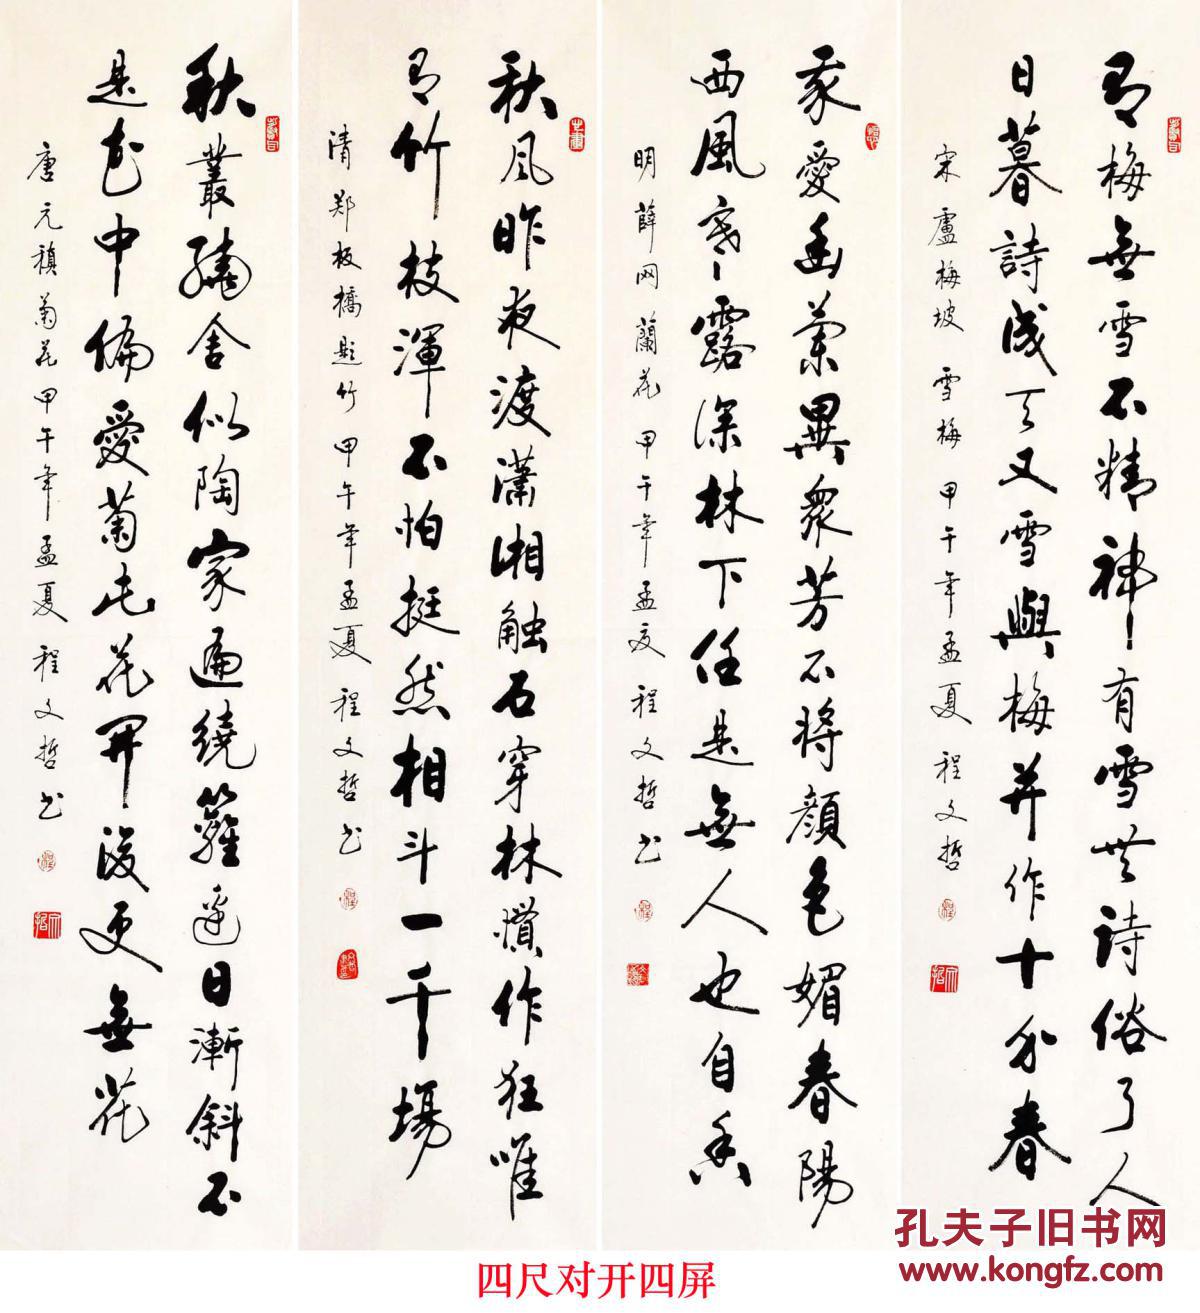 有梅無雪不精神有雪無詩俗了人
日暮詩成天又雪與梅并作十分春
宋盧梅坡 雪梅 甲午年孟夏 程文哲
我愛幽蘭異眾芳不將顏色媚春陽
西風寒露深林下任是無人也自香
明薛网蘭花甲午年孟夏程文哲书
秋風昨夜渡瀟湘触石穿林慣作狂唯
有竹枝渾不怕挺然相斗一千場
清郑板橋題竹甲午年孟夏程文哲书
秋叢繞舍似陶家遍繞籬邊日漸斜不
是花中偏愛菊此花開後更無花
唐元稹菊花甲午年孟夏程文哲书
孔夫子旧书网
www.kongfz.com
四尺对开四屏